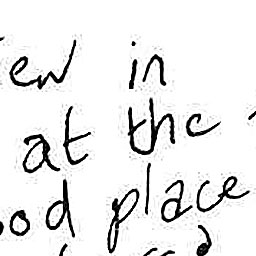 iew in
at the
ood place